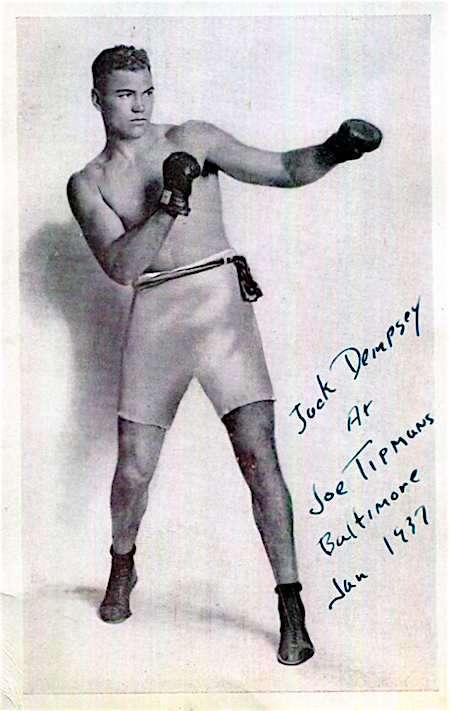 Jack Dempsey
At
Joe Tipmans
Baltimore
Jan 1937